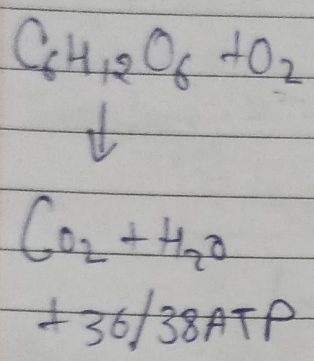 C₆H₁₂O₆ + O₂
↓
CO₂ + H₂O
+ 36/38 ATP